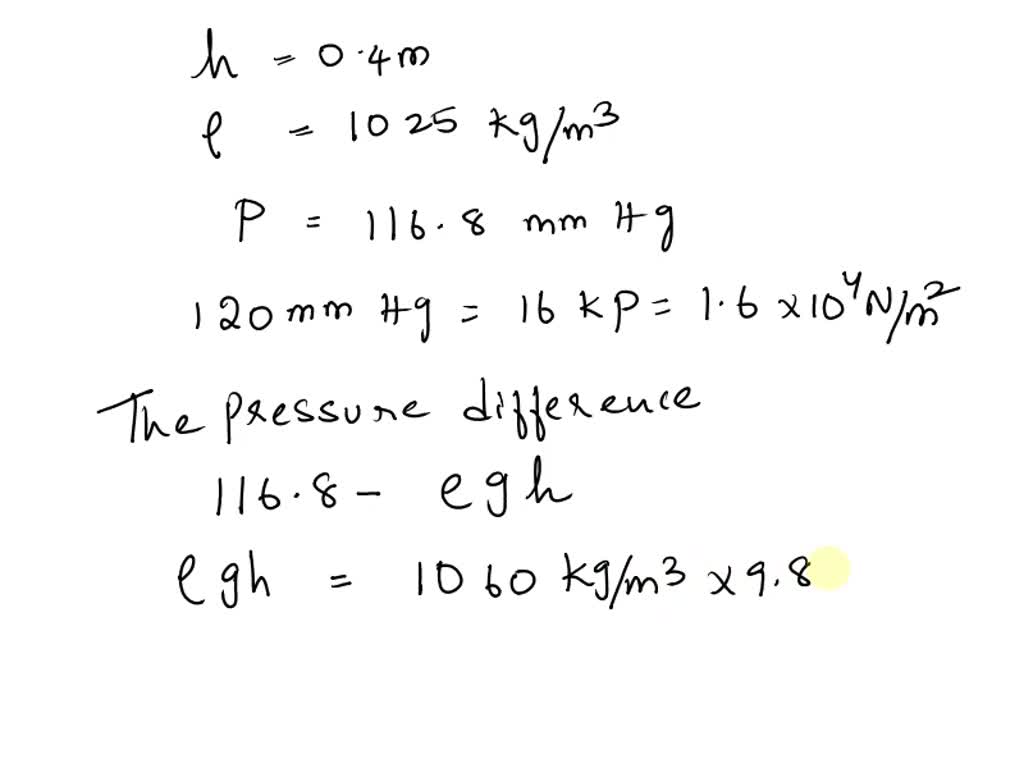 h = 0.4m
ρ = 1025 kg/m³
P = 116.8 mm Hg
120mm Hg = 16 kP = 1.6 × 10⁴ N/m²
The pressure difference
116.8 - ρgh
ρgh = 1060 kg/m³ × 9.8